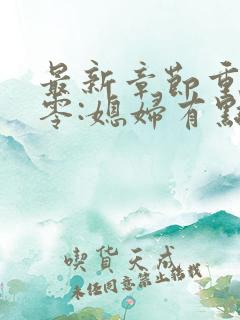 最新章節重
零:媳婦有點
喫貨天成
未经同意禁止转载